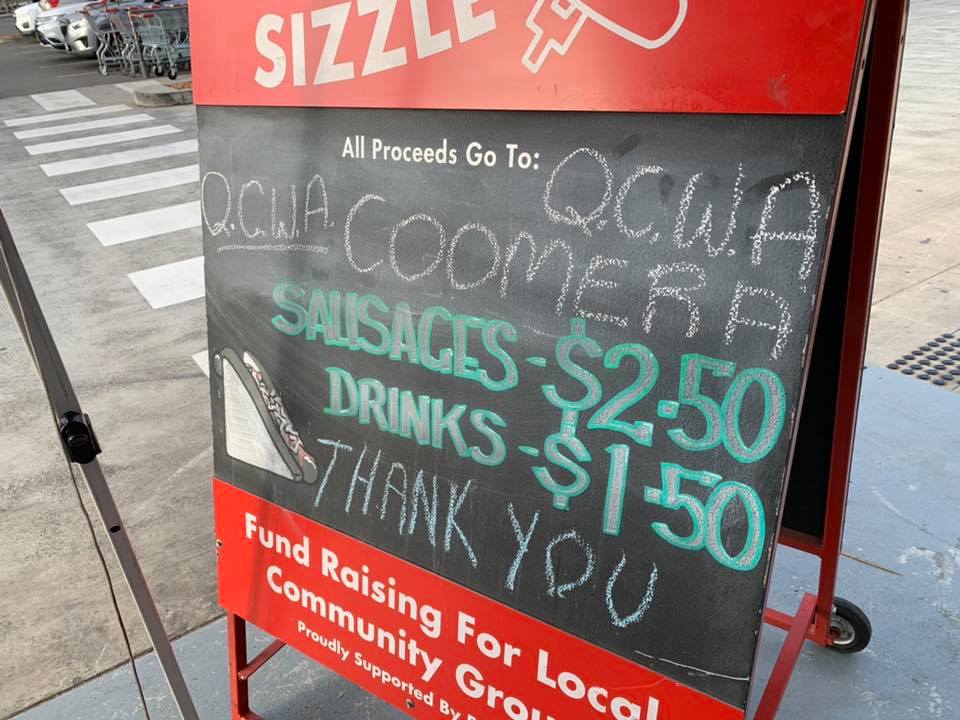 SIZZLE
All Proceeds Go To:
Q.C.W.A. COOMERA Q.C.W.A
SAUSAGES - $2.50
DRINKS - $1.50
THANK YOU
Fund Raising For Local
Community
Proudly Supported By